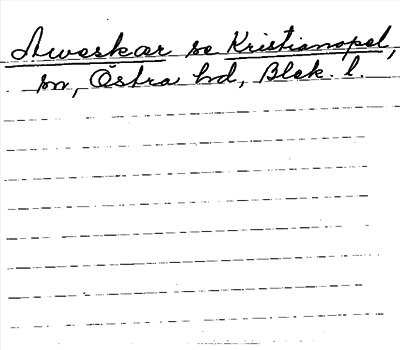 Aweskär se Kristianopel,
sn, Östra hd, Blek. l.